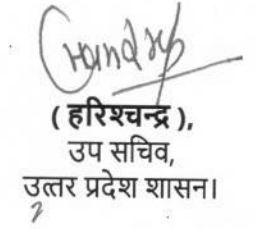 ( हरिश्चन्द्र ),
उप सचिव,
उत्तर प्रदेश शासन।